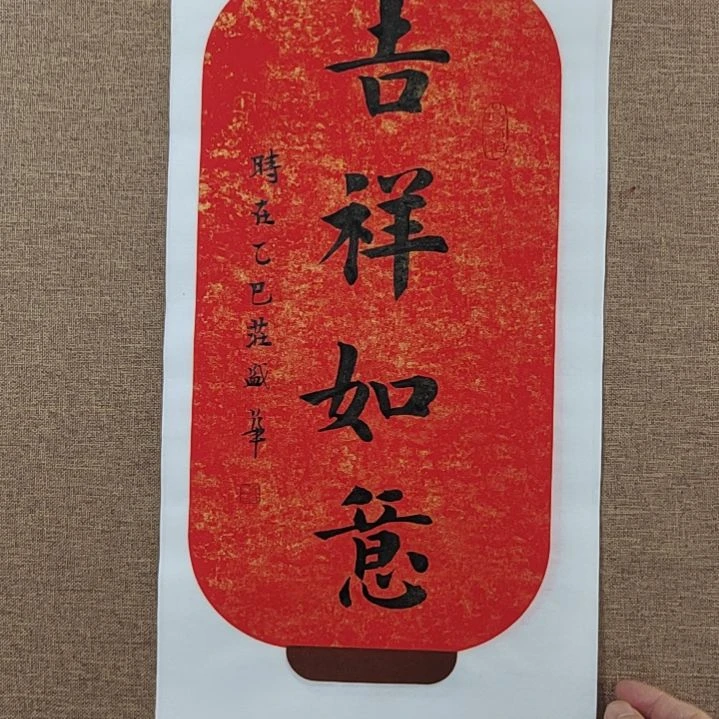 吉祥如意
時在乙巳莊盛華